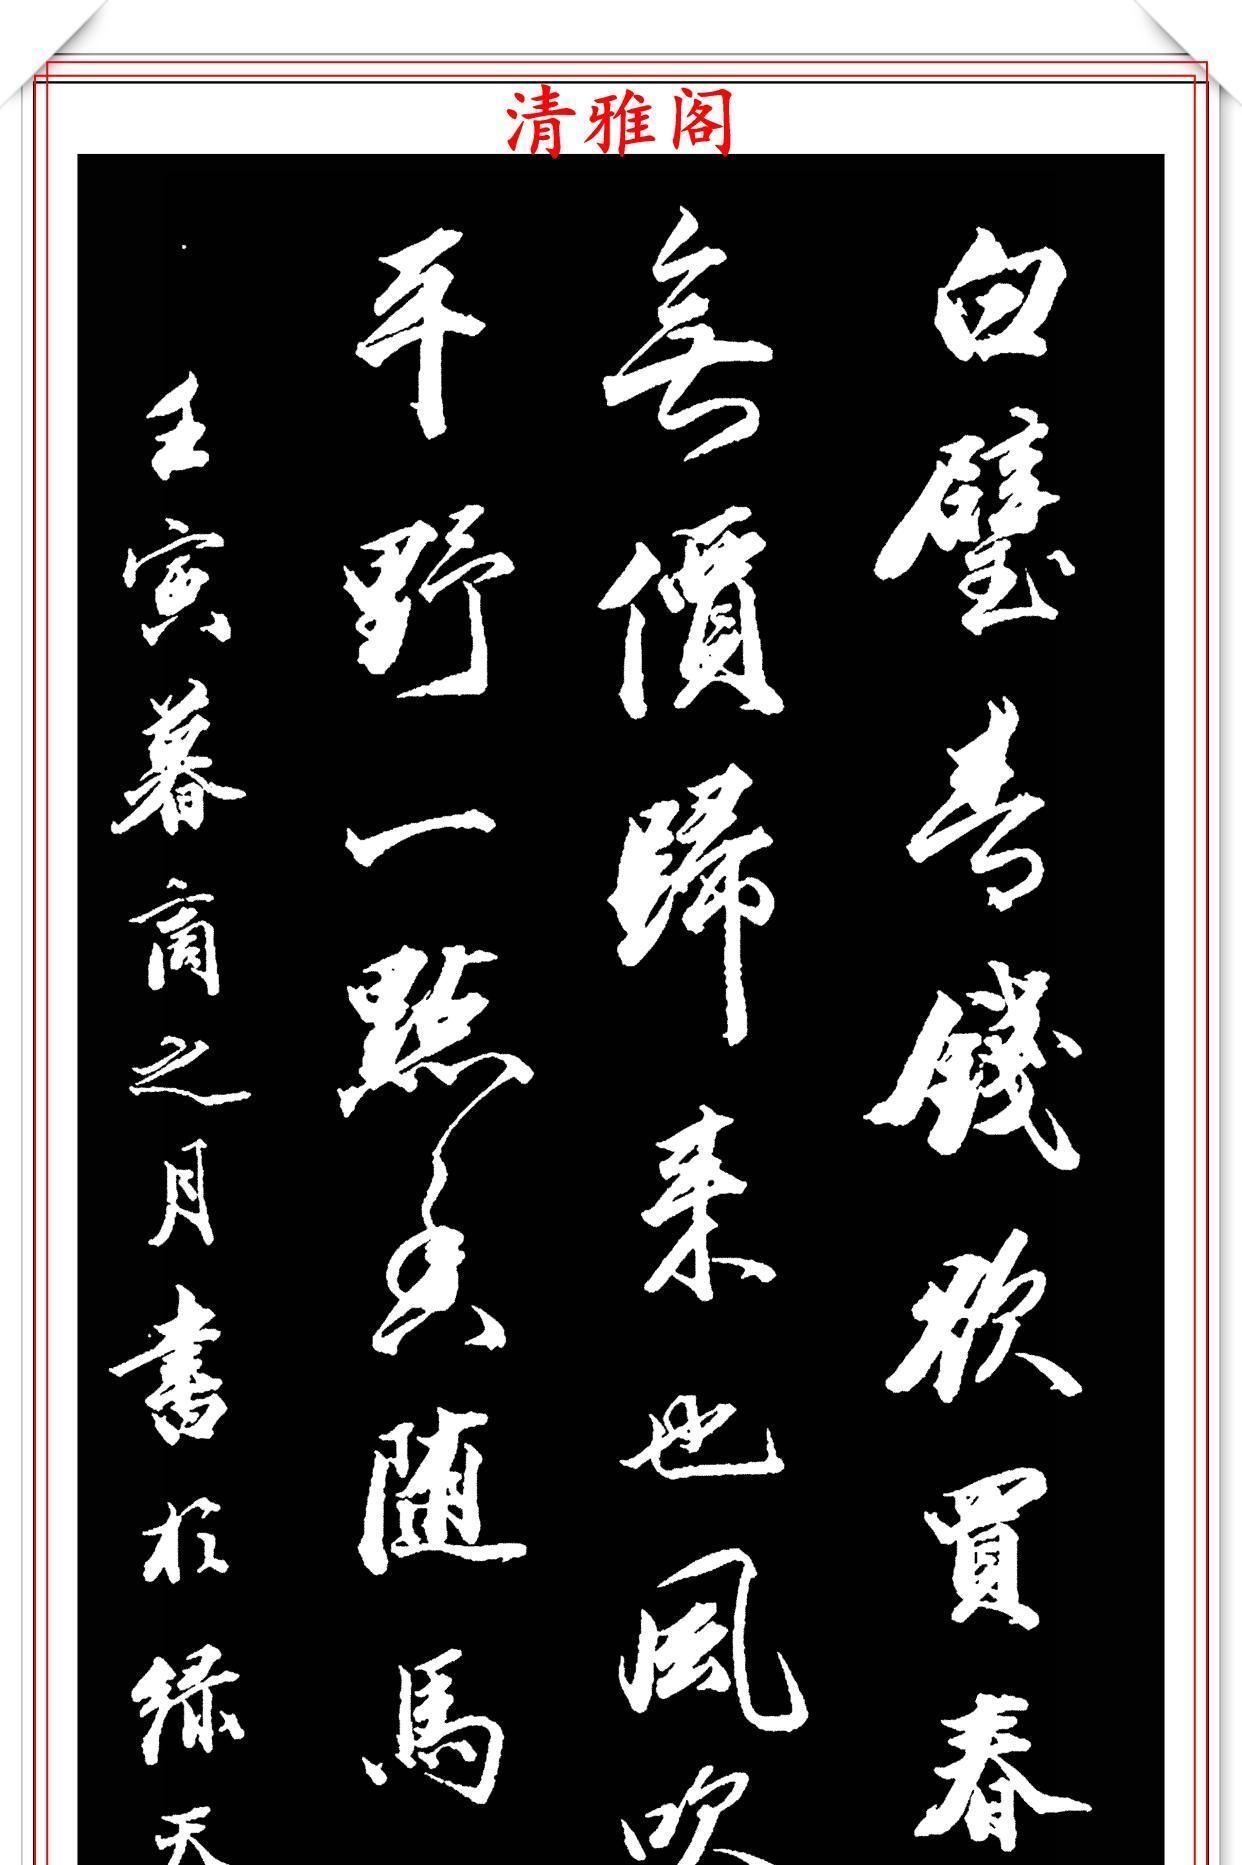 清雅阁
白璧青錢欲買春
無價歸来也風吹
平野一點香随馬
壬寅暮商之月書於緑天